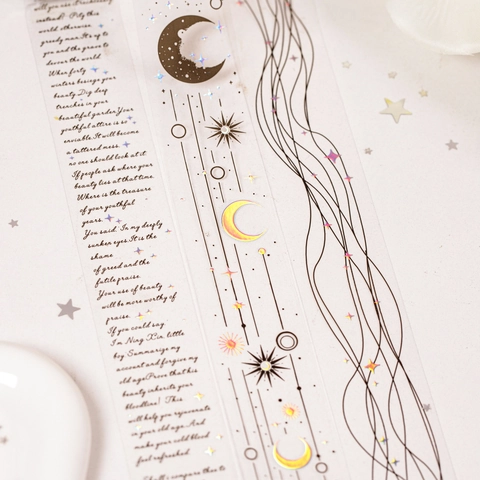 write you use Prackening
instead?- Pity this
world. otherwise.
greedy man.It's up to
you and the grave to
devour the world.
When forty
winters besiege your
beauty.Dig deep
trenches in your
beautiful garden.Your
youthful attire is so
enviable.It will become
a tattered mess.
no one should look at it.
If people ask where your
beauty lies at that time.
Where is the treasure
of your youthful
years.
You said. In my deeply
sunken eyes.It is the
shame
of greed and the
futile praise.
Your use of beauty
will be more worthy of
praise.
If you could say.
I'm Ning Xin little
boy Summarize my
account and forgive my
old ageProve that his
beauty inherits your
bloodline! This
will help you rejuvenate
in your old age.And
make your cold blood
feel refreshed.
Shall i compare thee to